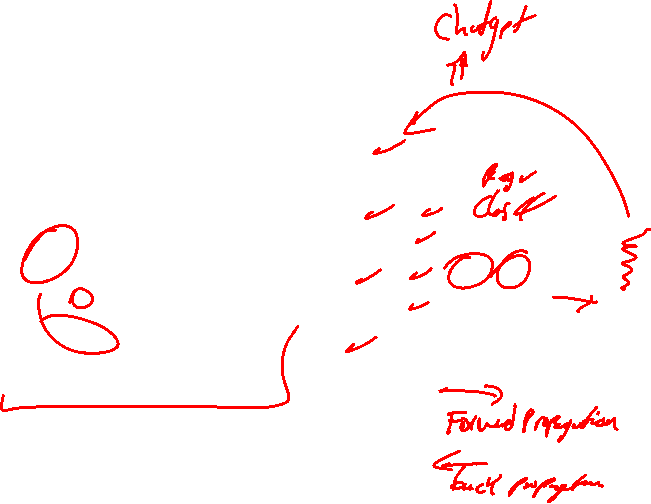 Chatgpt
Regr
Classf
Forward Propogation
back propogation